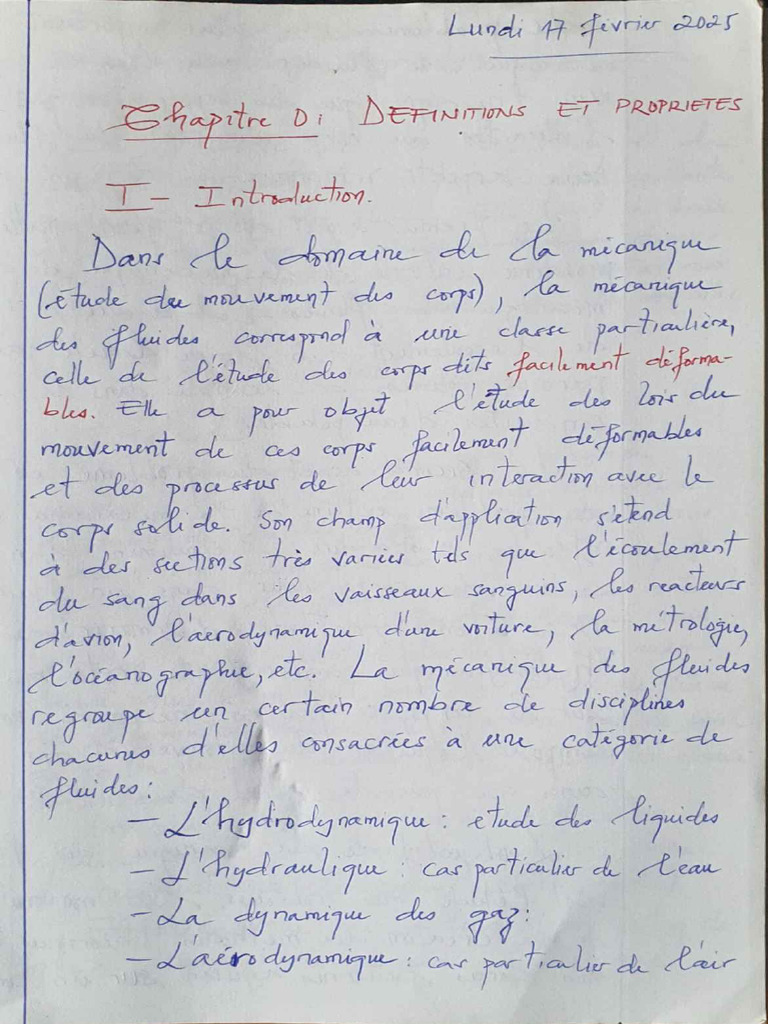 Lundi 17 février 2025
Chapitre 0: DEFINITIONS ET PROPRIETES
I- Introduction.
Dans le domaine de la mécanique
(étude du mouvement des corps), la mécanique
des fluides correspond à une classe particulière,
celle de l'étude des corps dits facilement déforma-
bles. Elle a pour objet l'étude des lois du
mouvement de ces corps facilement déformables
et des processus de leur interaction avec le
corps solide. Son champ d'application s'étend
à des sections très variées tels que l'écoulement
du sang dans les vaisseaux sanguins, les reacteurs
d'avion, l'aerodynamique d'une voiture, la métrologie,
l'océanographie, etc. La mécanique des fluides
regroupe un certain nombre de disciplines
chacunes d'elles consacrées à une catégorie de
fluides:
- L'hydrodynamique: etude des liquides
- L'hydraulique: cas particulier de l'eau
- La dynamique des gaz:
- L'aérodynamique: cas particulier de l'air